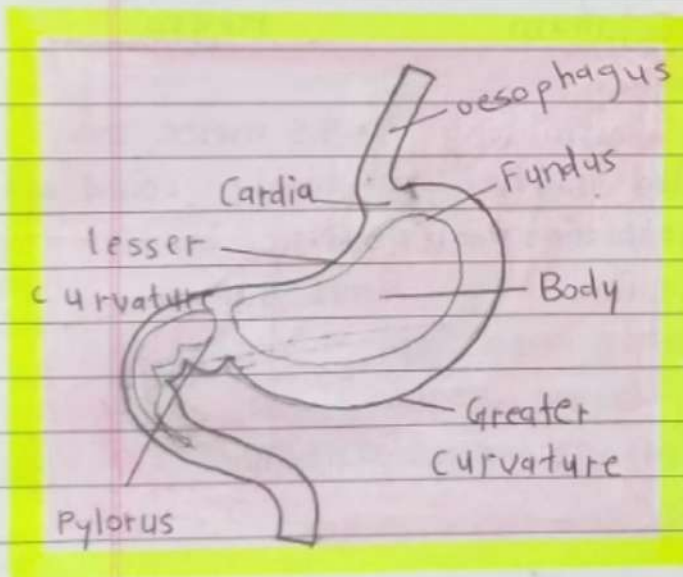 oesophagus
Fundus
Cardia
lesser
curvature
Body
Greater
curvature
Pylorus